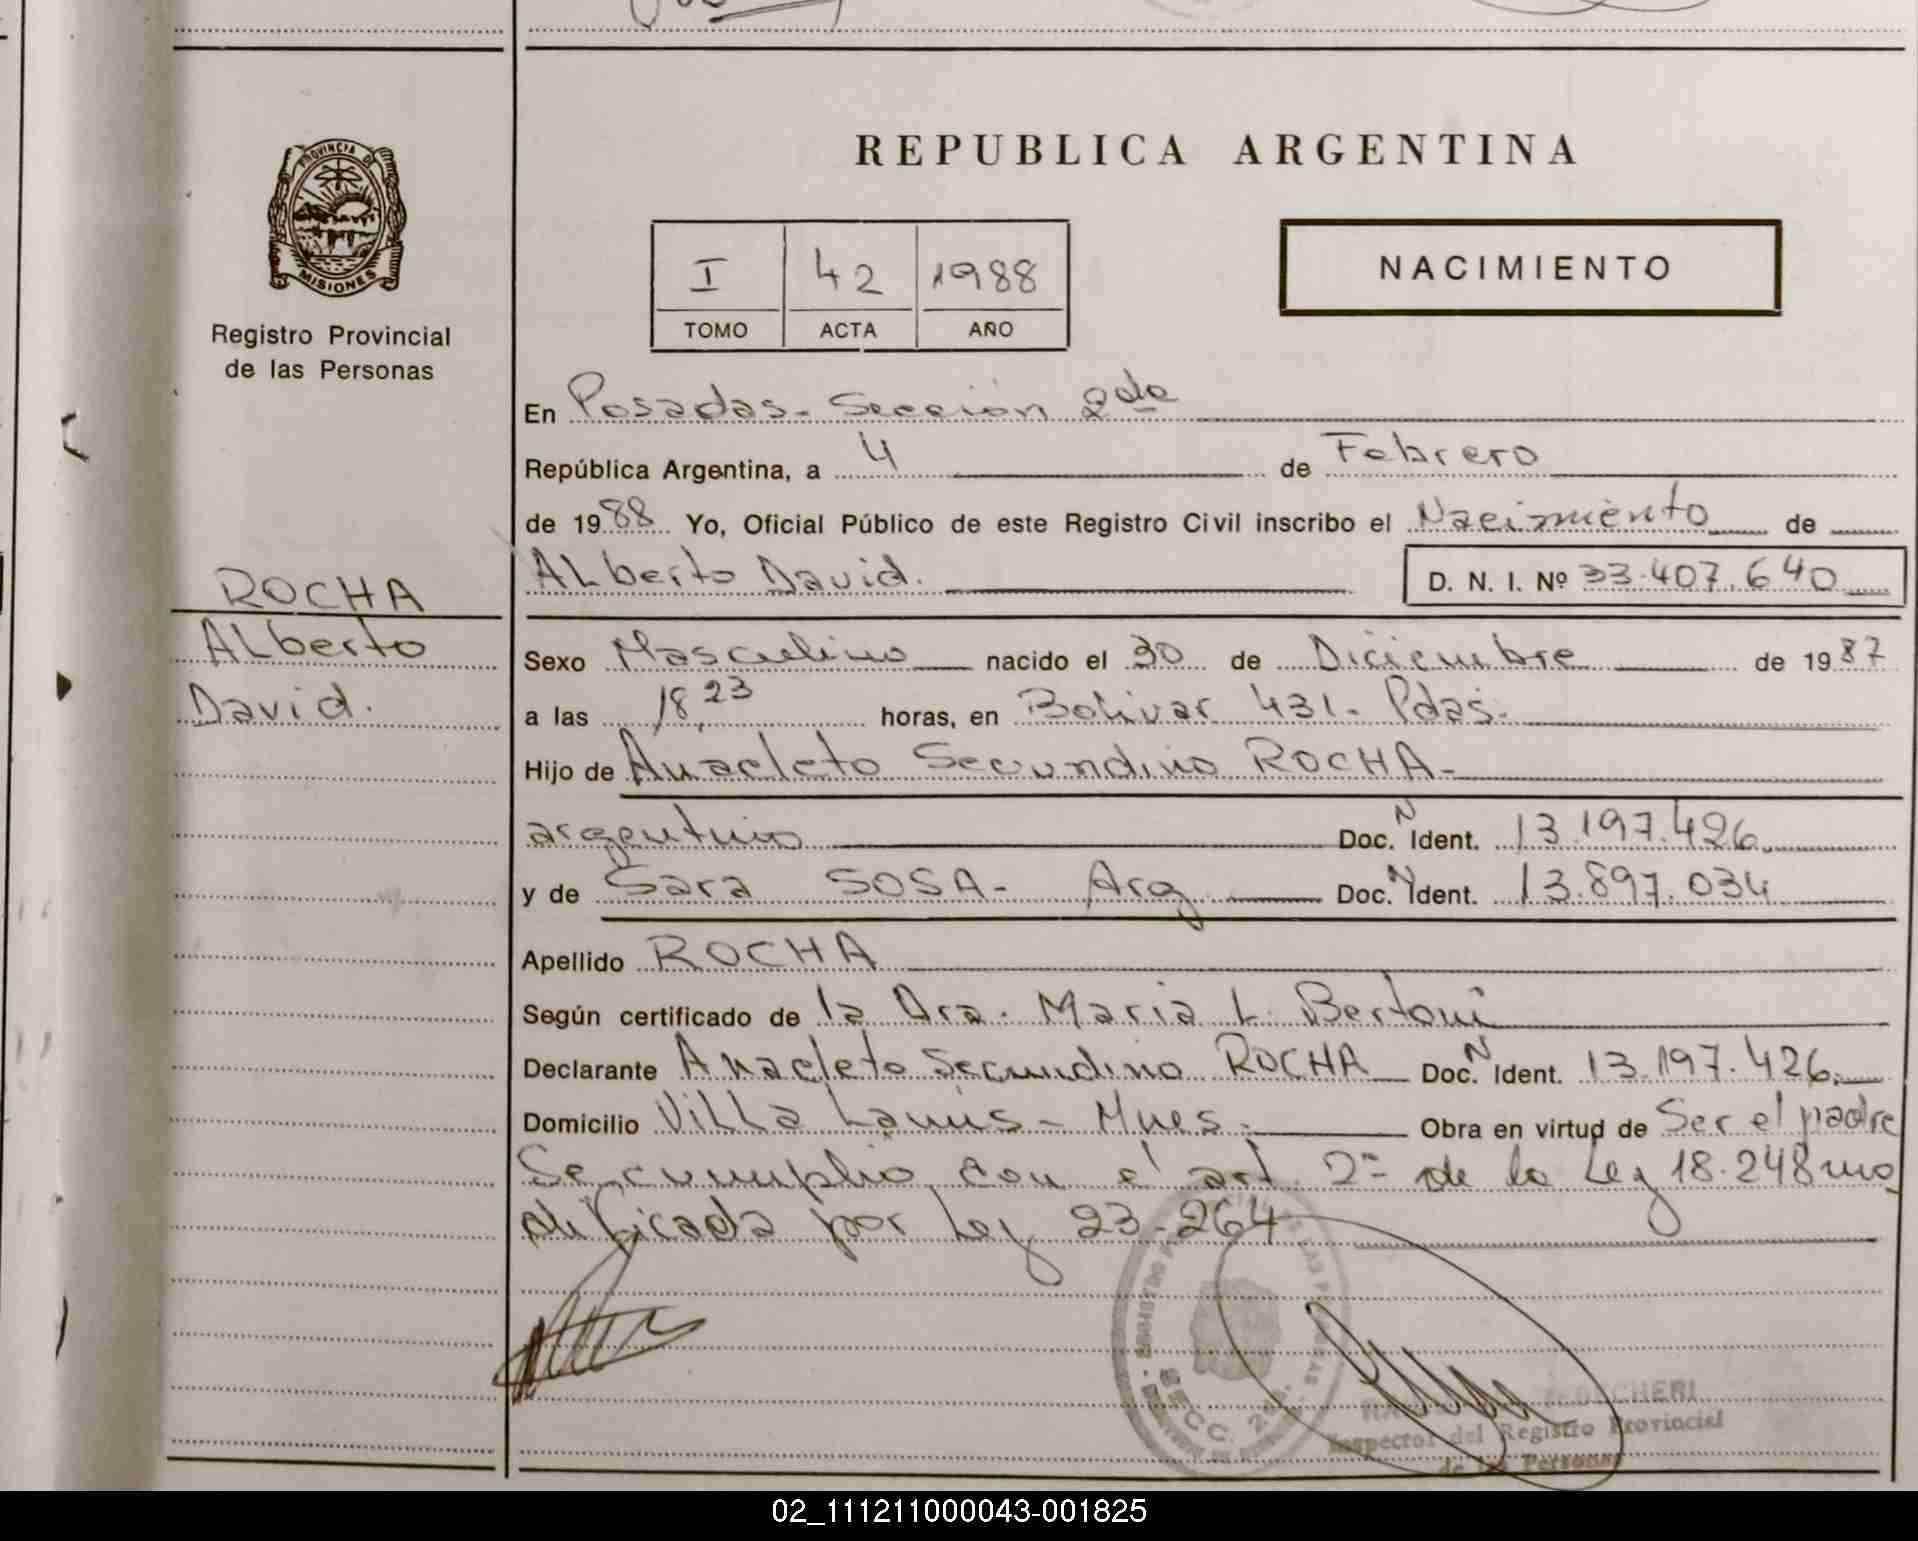 REPUBLICA ARGENTINA
PROVINCIA DE
MISIONES
Registro Provincial
de las Personas
I 42 1988
TOMO ACTA AÑO
NACIMIENTO
En Posadas- Sección 2da
República Argentina, a 4 de Febrero
de 1988 Yo, Oficial Público de este Registro Civil inscribo el Nacimiento de
Alberto David. D. N. I. Nº 33.407.640
ROCHA
Alberto
David.
Sexo Masculino nacido el 30 de Diciembre de 1987
a las 18,23 horas, en Bolivar 431. Pdas.
Hijo de Anacleto Secundino ROCHA-
argentino Doc. N Ident. 13.197.426.
y de Sara SOSA- Arg. Doc. N Ident. 13.897.034
Apellido ROCHA
Según certificado de la Dra. Maria L. Bertoni
Declarante Anacleto Secundino ROCHA Doc. N Ident. 13.197.426.
Domicilio Villa Lanus- Mnes. Obra en virtud de Ser el padre
Se cumplio con el art. 2º de la Ley 18.248 mo
dificada por Ley 23-264
SECC. 2da.
Inspector del Registro Provincial
de las Personas
02_111211000043-001825